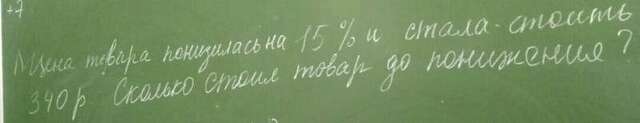 +7
Цена товара понизилась на 15 % и стала стоить
340 р Сколько стоил товар до понижения ?